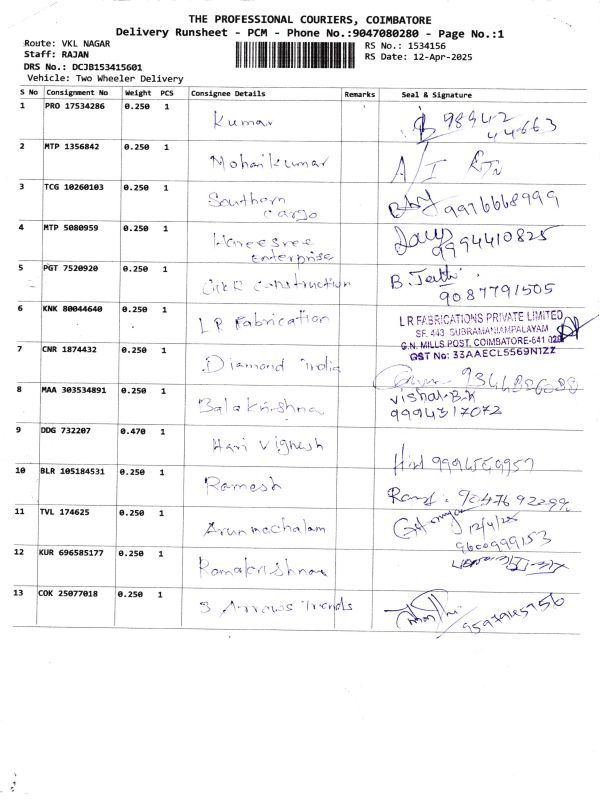 THE PROFESSIONAL COURIERS, COIMBATORE
Delivery Runsheet - PCM - Phone No.:9047080280 - Page No.:1
Route: VKL NAGAR
Staff: RAJAN
DRS No.: DCJB153415601
Vehicle: Two Wheeler Delivery
RS No.: 1534156
RS Date: 12-Apr-2025
S No Consignment No Weight PCS Consignee Details Remarks Seal & Signature
1 PRO 17534286 0.250 1 Kumar 98942
44663
2 MTP 1356842 0.250 1 Mohankumar A/I RTN
3 TCG 10260103 0.250 1 Southern
cargo 9976668999
4 MTP 5080959 0.250 1 Hareesree
enterprise 9994410825
5 PGT 7520920 0.250 1 construction B.
9087791505
6 KNK 80044640 0.250 1 LR Fabrication
L R FABRICATIONS PRIVATE LIMITED
SF. 443, SUBRAMANIAMPALAYAM
G.N. MILLS POST, COIMBATORE-641 029
GST No: 33AAECL5569N1ZZ
7 CNR 1874432 0.250 1 Diamond india
8 MAA 303534891 0.250 1 Balakrishna Vishal.B.K
9994317072
9 DDG 732207 0.470 1 Hari Vignesh
10 BLR 105184531 0.250 1 Ramesh
11 TVL 174625 0.250 1 Arunnachalam 12/4/25
9600999153
12 KUR 696585177 0.250 1 Ramakrishnan
13 COK 25077018 0.250 1 3 Arrows Trends